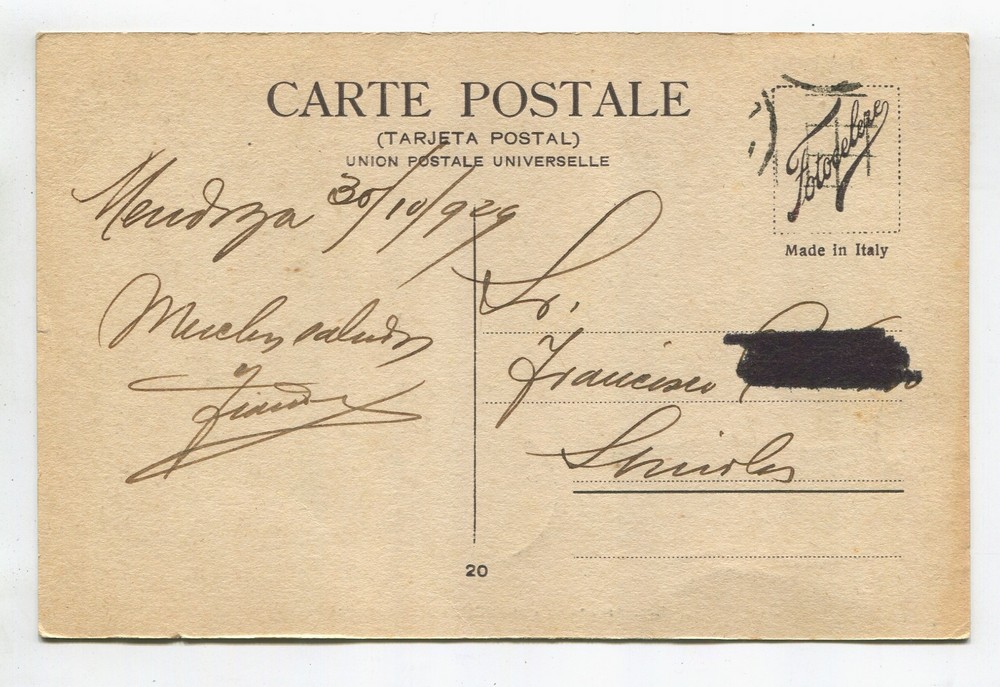 CARTE POSTALE
(TARJETA POSTAL)
UNION POSTALE UNIVERSELLE
Fotocelere
Made in Italy
Mendoza 30/10/929
Muchos saludos
Sr.
Francisco
20